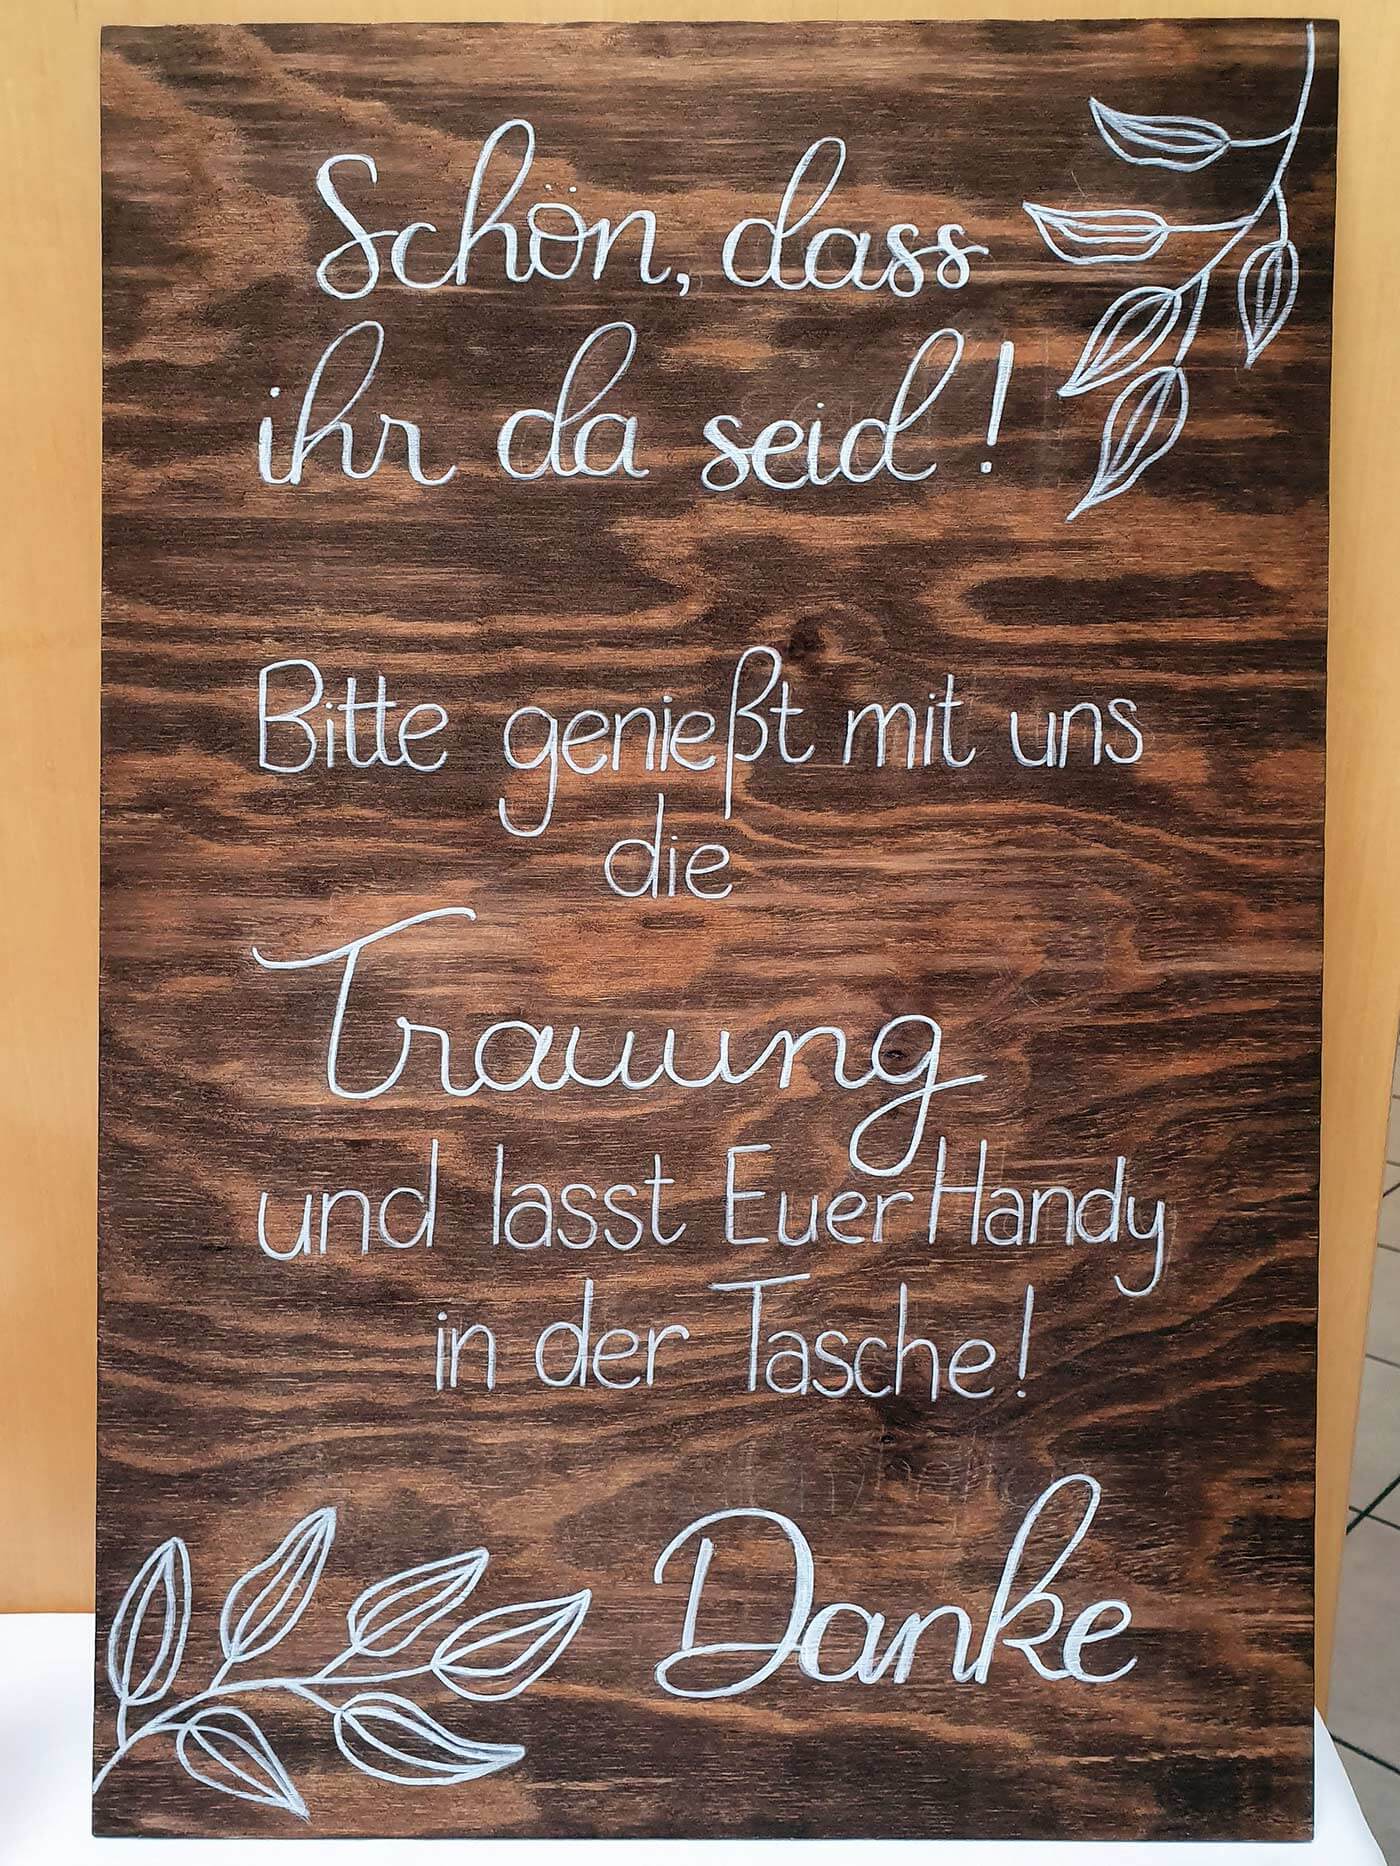 Schön, dass
ihr da seid!
Bitte genießt mit uns
die
Trauung
und lasst Euer Handy
in der Tasche!
Danke